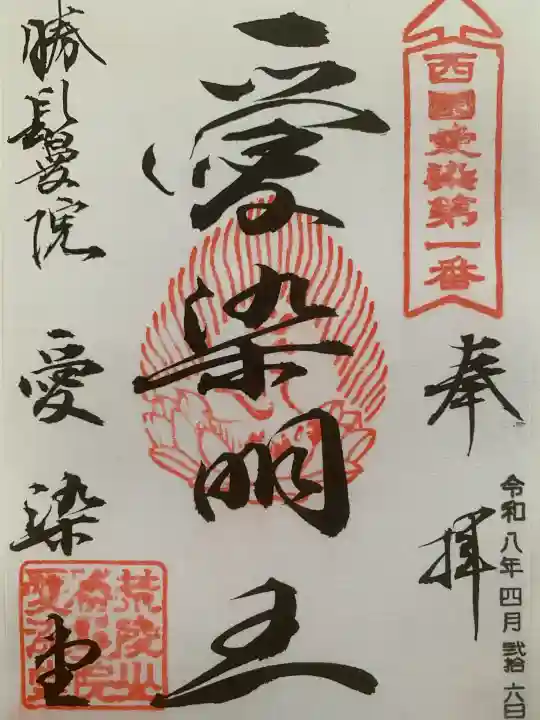 西國愛染第一番
奉拝
令和八年四月弐拾六日
愛染明王
勝鬘院 愛染堂
荒陵山
勝鬘院
愛染堂